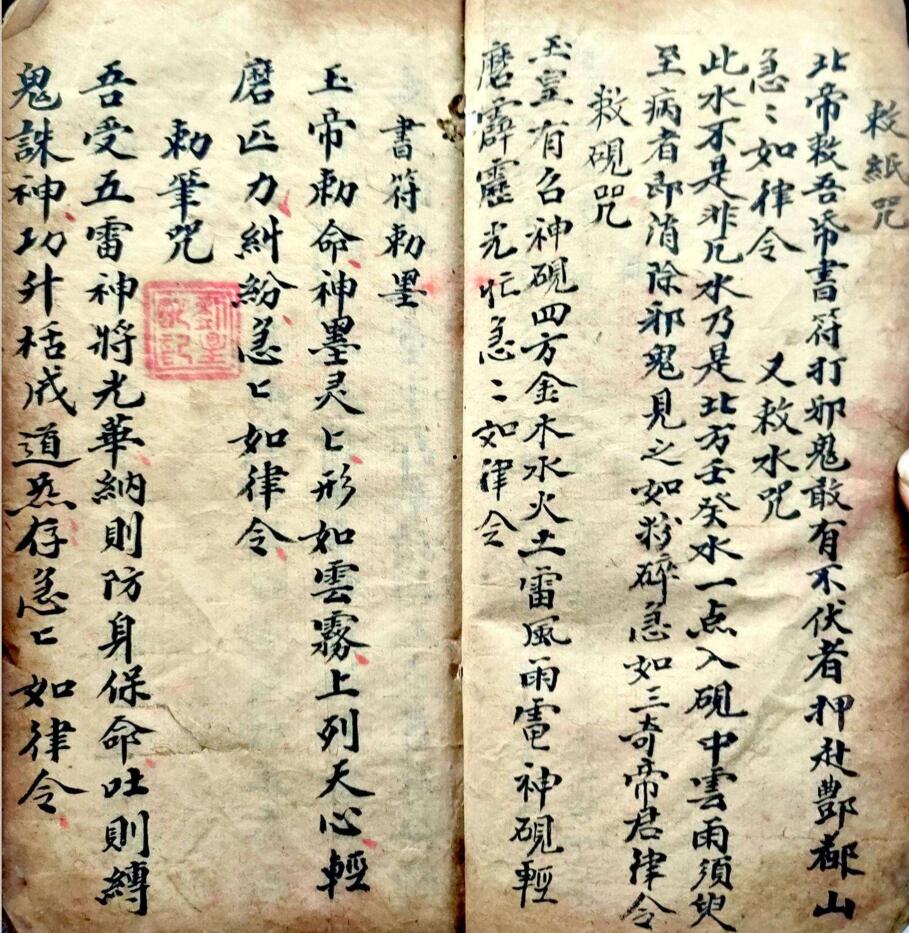 敕紙咒
北帝敕吾呇帋書符打邪鬼敢有不伏者押赴酆都山
急〻如律令 又敕水咒
此水不是非凡水乃是北方壬癸水一点入硯中雲雨須臾
至病者即消除邪鬼見之如粉碎急如三奇帝君律令
敕硯咒
玉皇有召神硯四方金木水火土雷風雨電神硯輕
磨霹靂光忙急〻如律令
書符勅墨
玉帝勅命神墨灵匕形如雲霧上列天心輕
磨匹力糾紛急匕如律令
勅筆咒
吾受五雷神將光華納則防身保命吐則縛
鬼誅神功升栝成道炁存急匕如律令